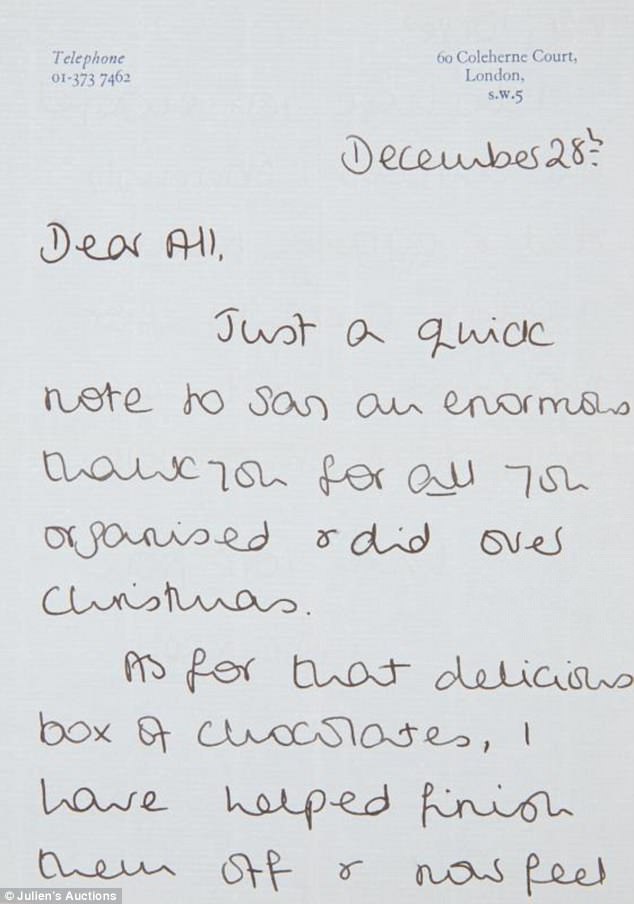 Telephone
01-373 7462
60 Coleherne Court,
London,
s.w.5
December 28th
Dear All,
Just a quick
note to say an enormous
thank you for all you
organised & did over
Christmas.
As for that delicious
box of chocolates, I
have helped finish
them off & now feel
© Julien's Auctions